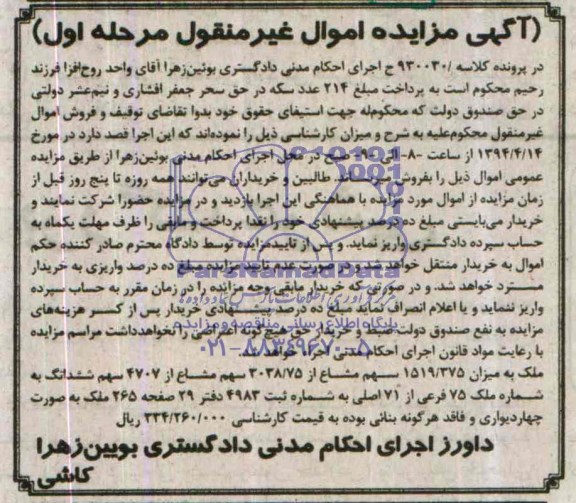 (آگهی مزایده اموال غیر منقول مرحله اول)
در پرونده کلاسه /۹۳۰۰۳۰ ج اجرای احکام مدنی دادگستری بوئین‌زهرا آقای واحد روح‌افزا فرزند
رحیم محکوم است به پرداخت مبلغ ۲۱۴ عدد سکه در حق سحر جعفر افشاری و نیم‌عشر دولتی
در حق صندوق دولت که محکوم‌له جهت استیفای حقوق خود بدوا تقاضای توقیف و فروش اموال
غیرمنقول محکوم‌علیه به شرح و میزان کارشناسی ذیل را نموده‌اند که این اجرا قصد دارد در مورخ
۱۳۹۴/۴/۱۴ از ساعت -۸- الی -۹- صبح در محل اجرای احکام مدنی بوئین‌زهرا از طریق مزایده
عمومی اموال ذیل را بفروش میرساند. طالبین و خریداران می‌توانند همه روزه تا پنج روز قبل از
زمان مزایده از اموال مورد مزایده با هماهنگی این اجرا بازدید و در مزایده حضورا شرکت نمایند و
خریدار می‌بایستی مبلغ ده درصد پیشنهادی خود را نقدا پرداخت و مابقی را ظرف مهلت یکماه به
حساب سپرده دادگستری واریز نماید. و پس از تاییدمزایده توسط دادگاه محترم صادر کننده حکم
اموال به خریدار منتقل خواهد شد و در صورت عدم تایید مزایده مبلغ ده درصد واریزی به خریدار
مسترد خواهد شد. و در صورتی که خریدار مابقی وجه مزایده را در زمان مقرر به حساب سپرده
واریز ننماید و یا اعلام انصراف نماید مبلغ ده درصد پیشنهادی خریدار پس از کسر هزینه‌های
مزایده به نفع صندوق دولت ضبط و خریدار حق هیچ گونه اعتراضی را نخواهدداشت مراسم مزایده
با رعایت مواد قانون اجرای احکام مدنی اجراء خواهد شد
ملک به میزان ۱۵۱۹/۳۷۵ سهم مشاع از ۳۰۳۸/۷۵ سهم مشاع از ۴۷۰۷ سهم ششدانگ به
شماره ملک ۷۵ فرعی از ۷۱ اصلی به شماره ثبت ۴۹۸۳ دفتر ۲۹ صفحه ۲۶۵ ملک به صورت
چهاردیواری و فاقد هرگونه بنائی بوده به قیمت کارشناسی ۳۳۴/۲۶۰/۰۰۰ ریال
داورز اجرای احکام مدنی دادگستری بویین‌زهرا
کاشی
ParsNamadData
پایگاه اطلاع رسانی مناقصه و مزایده
۰۲۱-۸۸۳۴۹۶۷۰-۵